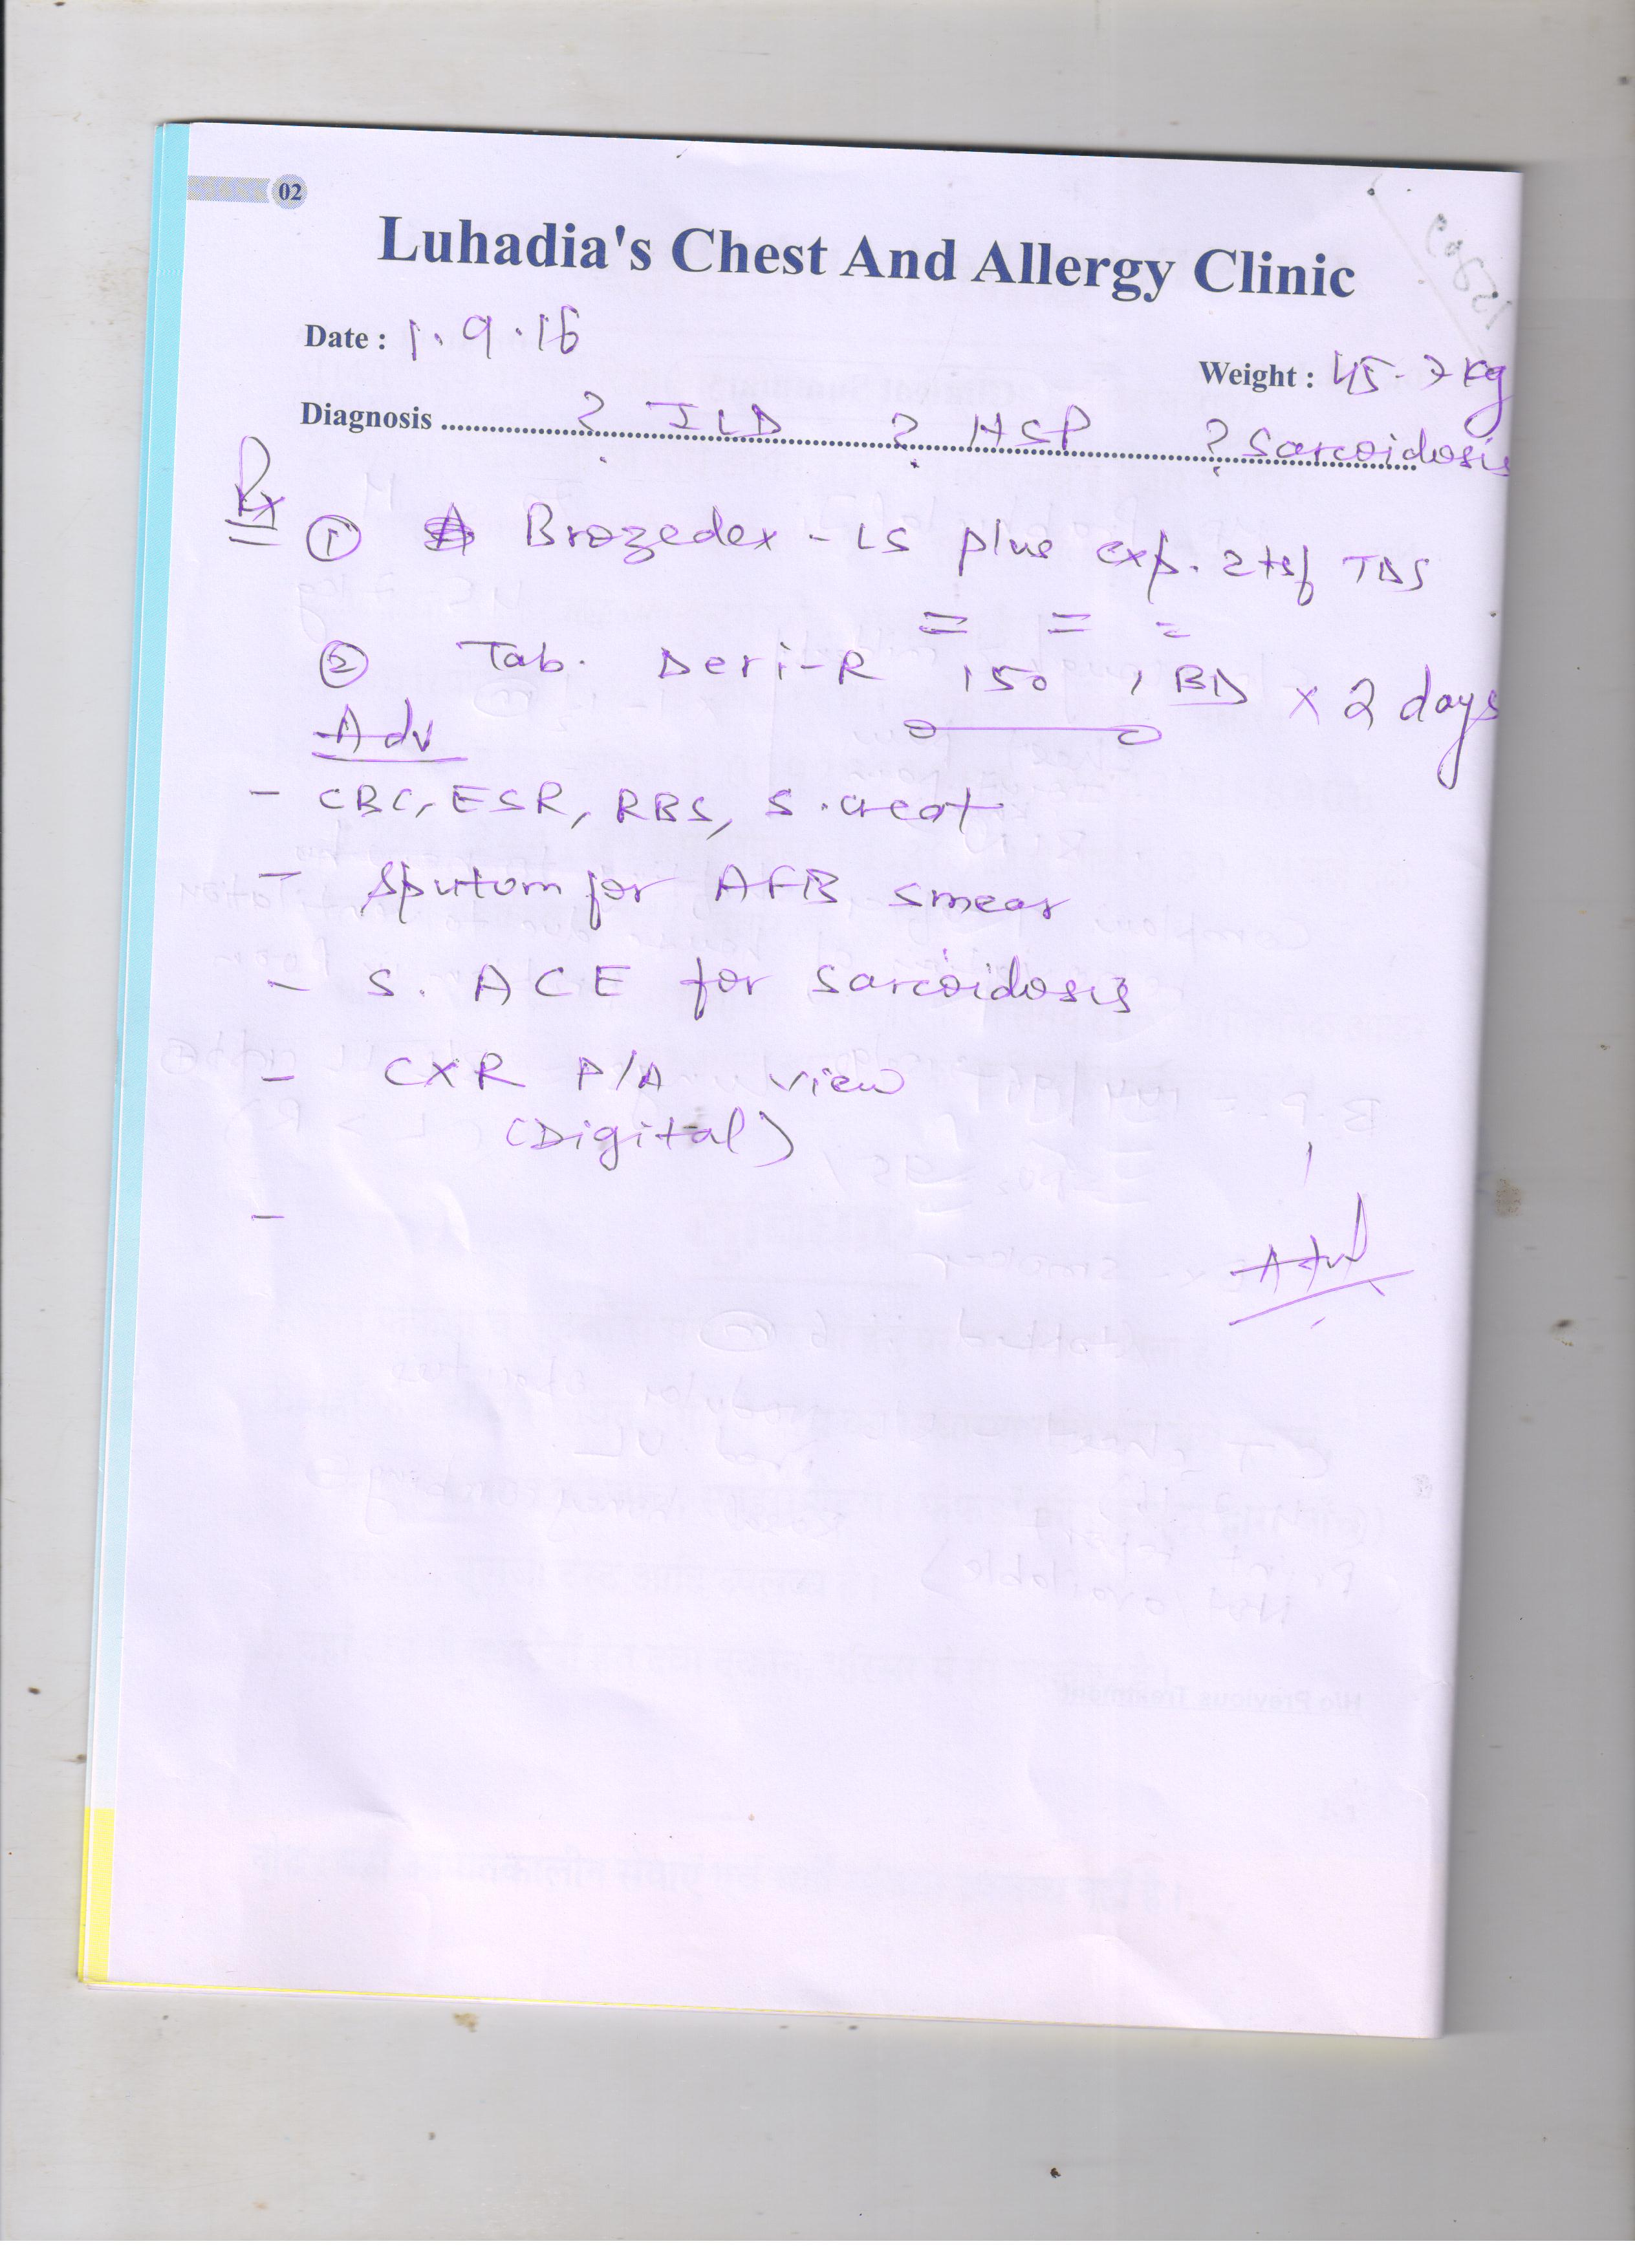 02
Luhadia's Chest And Allergy Clinic
Date : 1.9.16
Weight : 45.7 kg
Diagnosis ? ILD ? HSP ? Sarcoidosis
Rx
① Brozedex - LS plus exp. 2tsf TDS
② Tab. Deri-R 150 1 BD x 2 days
Adv
- CBC, ESR, RBS, S. creat
- Sputum for AFB smear
- S. ACE for Sarcoidosis
- CXR P/A view
(Digital)
-